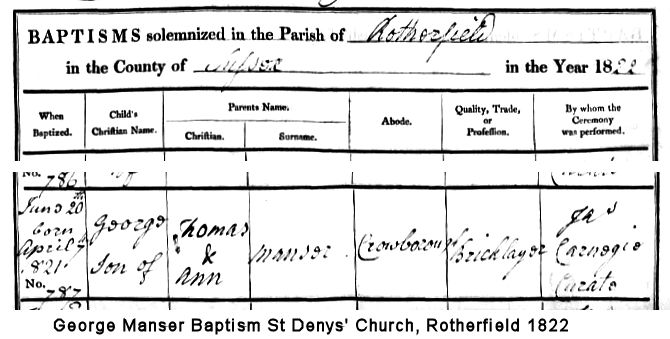 BAPTISMS solemnized in the Parish of Rotherfield
in the County of Sussex in the Year 1822
When Baptized.
Child's Christian Name.
Parents Name.
Christian.
Surname.
Abode.
Quality, Trade, or Profession.
By whom the Ceremony was performed.
No. 786
June 20th
born
April
1821.
No. 787
George
Son of
Thomas
&
Ann
Manser
Crowborough
Bricklayer
Jas
Carnegie
Curate
George Manser Baptism St Denys' Church, Rotherfield 1822